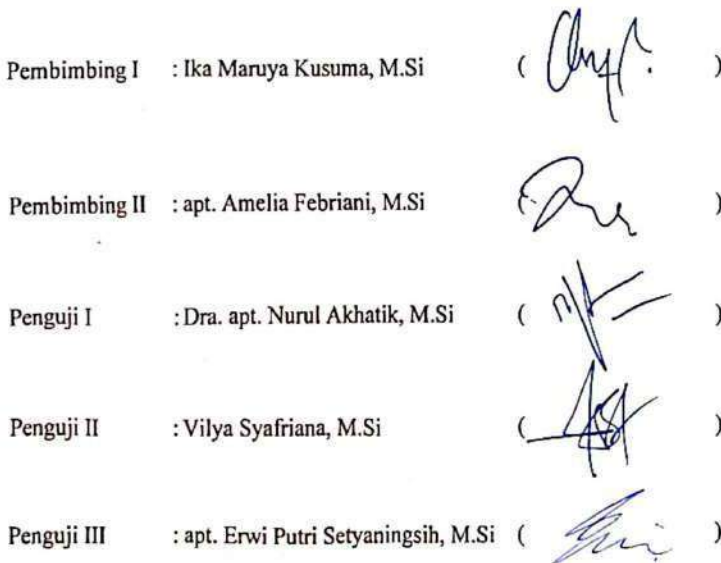 Pembimbing I : Ika Maruya Kusuma, M.Si ( )
Pembimbing II : apt. Amelia Febriani, M.Si ( )
Penguji I : Dra. apt. Nurul Akhatik, M.Si ( )
Penguji II : Vilya Syafriana, M.Si ( )
Penguji III : apt. Erwi Putri Setyaningsih, M.Si ( )